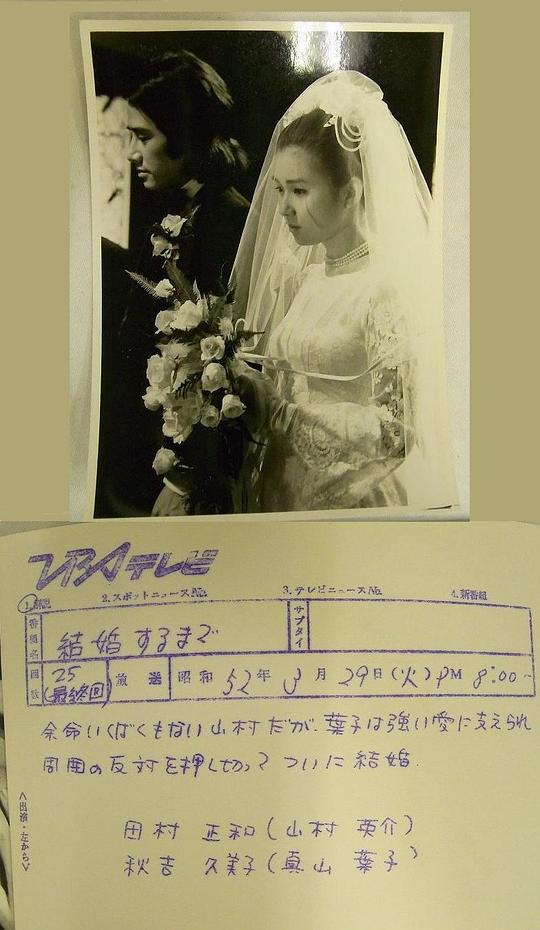 テレビ
2.スポットニュースNo.
3.テレビニュースNo.
4.新番組
番組名 結婚するまで サブタイ
回数 25(最終回) 放送 昭和52年3月29日(火)PM 8:00~
余命いくばくもない山村だが、葉子は強い愛に支えられ
周囲の反対を押し切ってついに結婚.
<出演・左から>
田村 正和(山村 英介)
秋吉 久美子(真山 葉子)